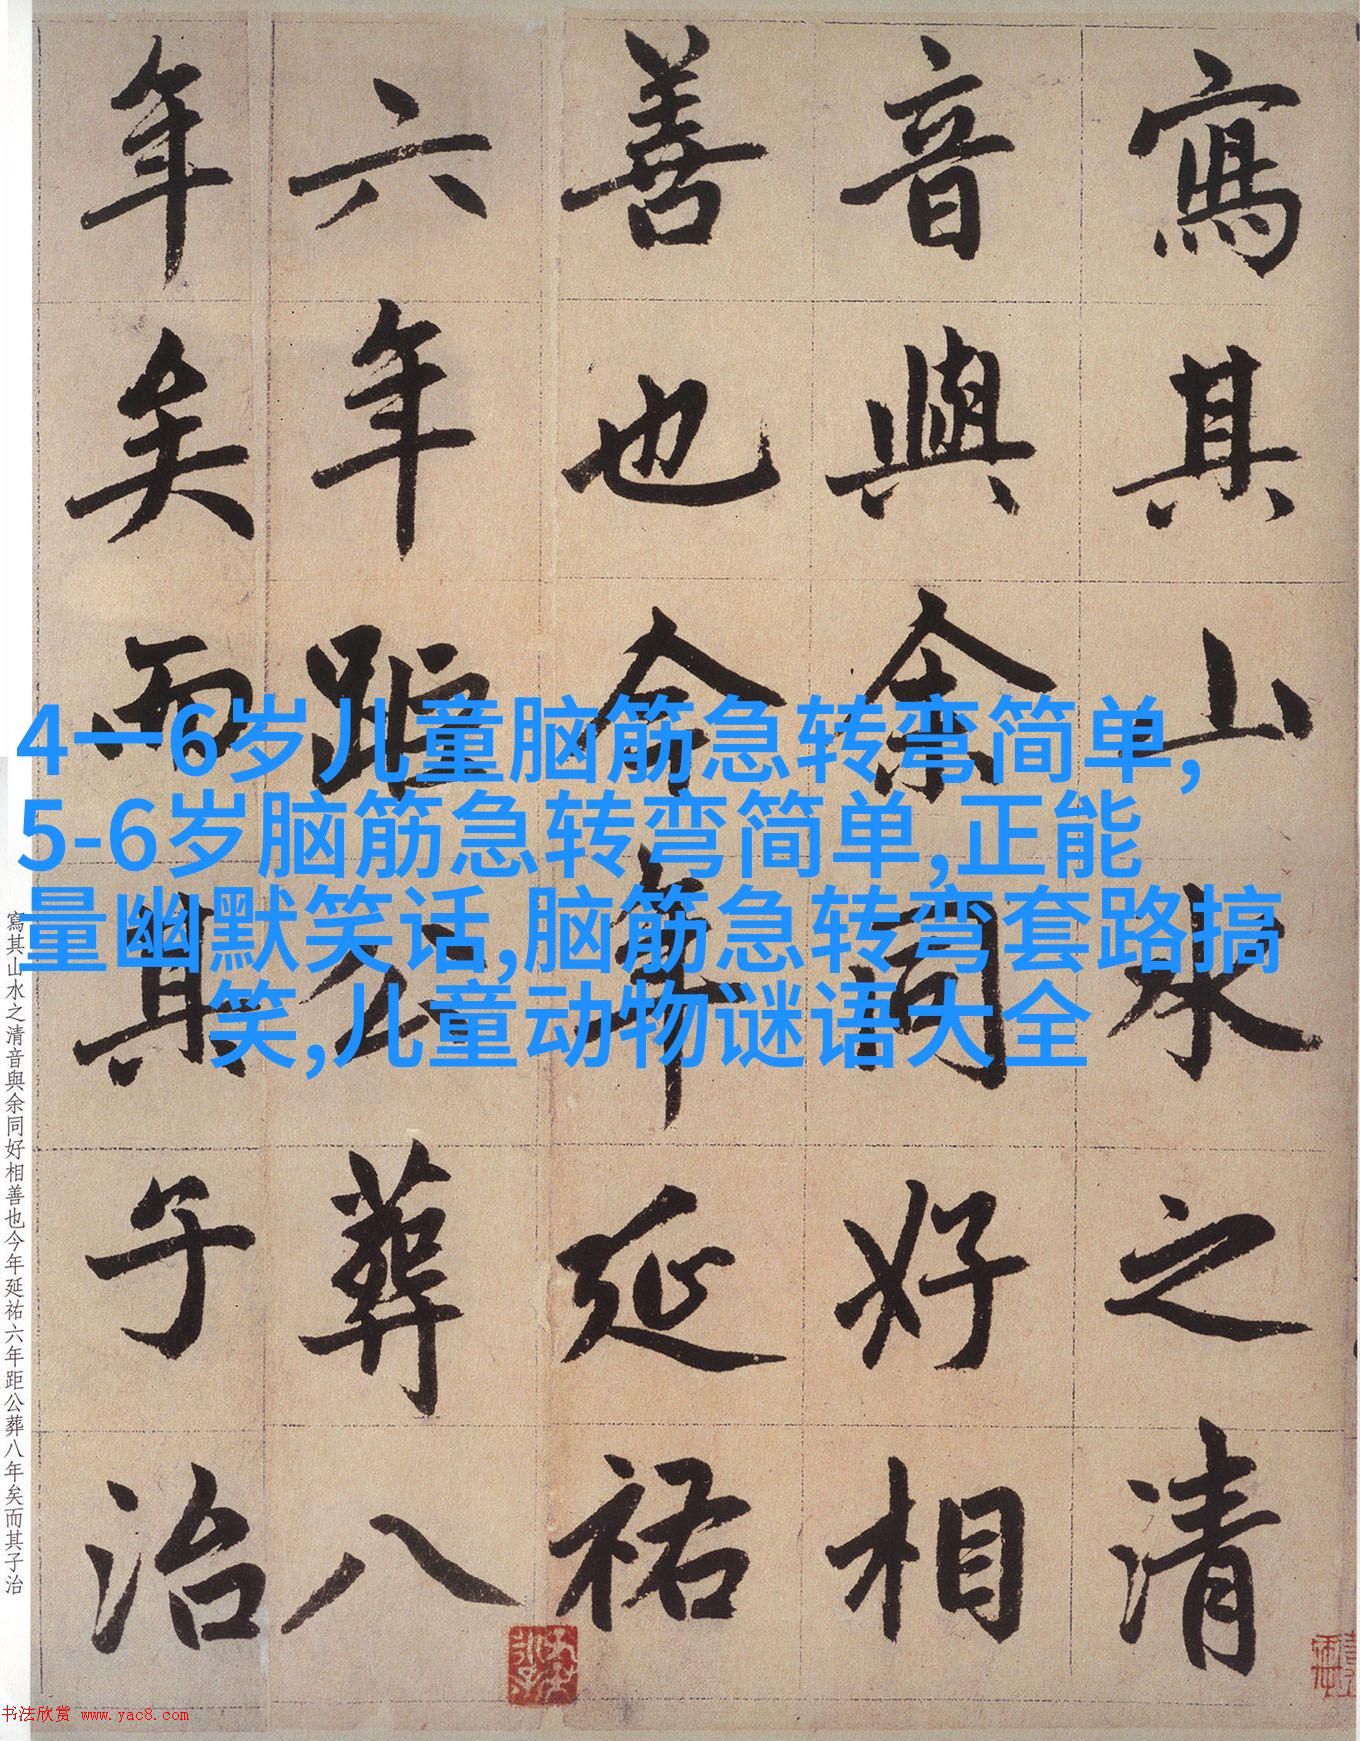 寫其山水之清
音與余同好相
善也今年延祐
六年距公葬八
年矣而其子治
4一6岁儿童脑筋急转弯简单,
5-6岁脑筋急转弯简单,正能
量幽默笑话,脑筋急转弯套路搞
笑,儿童动物谜语大全
寫其山水之清音與余同好相善也今年延祐六年距公葬八年矣而其子治
书法欣赏 www.yac8.com